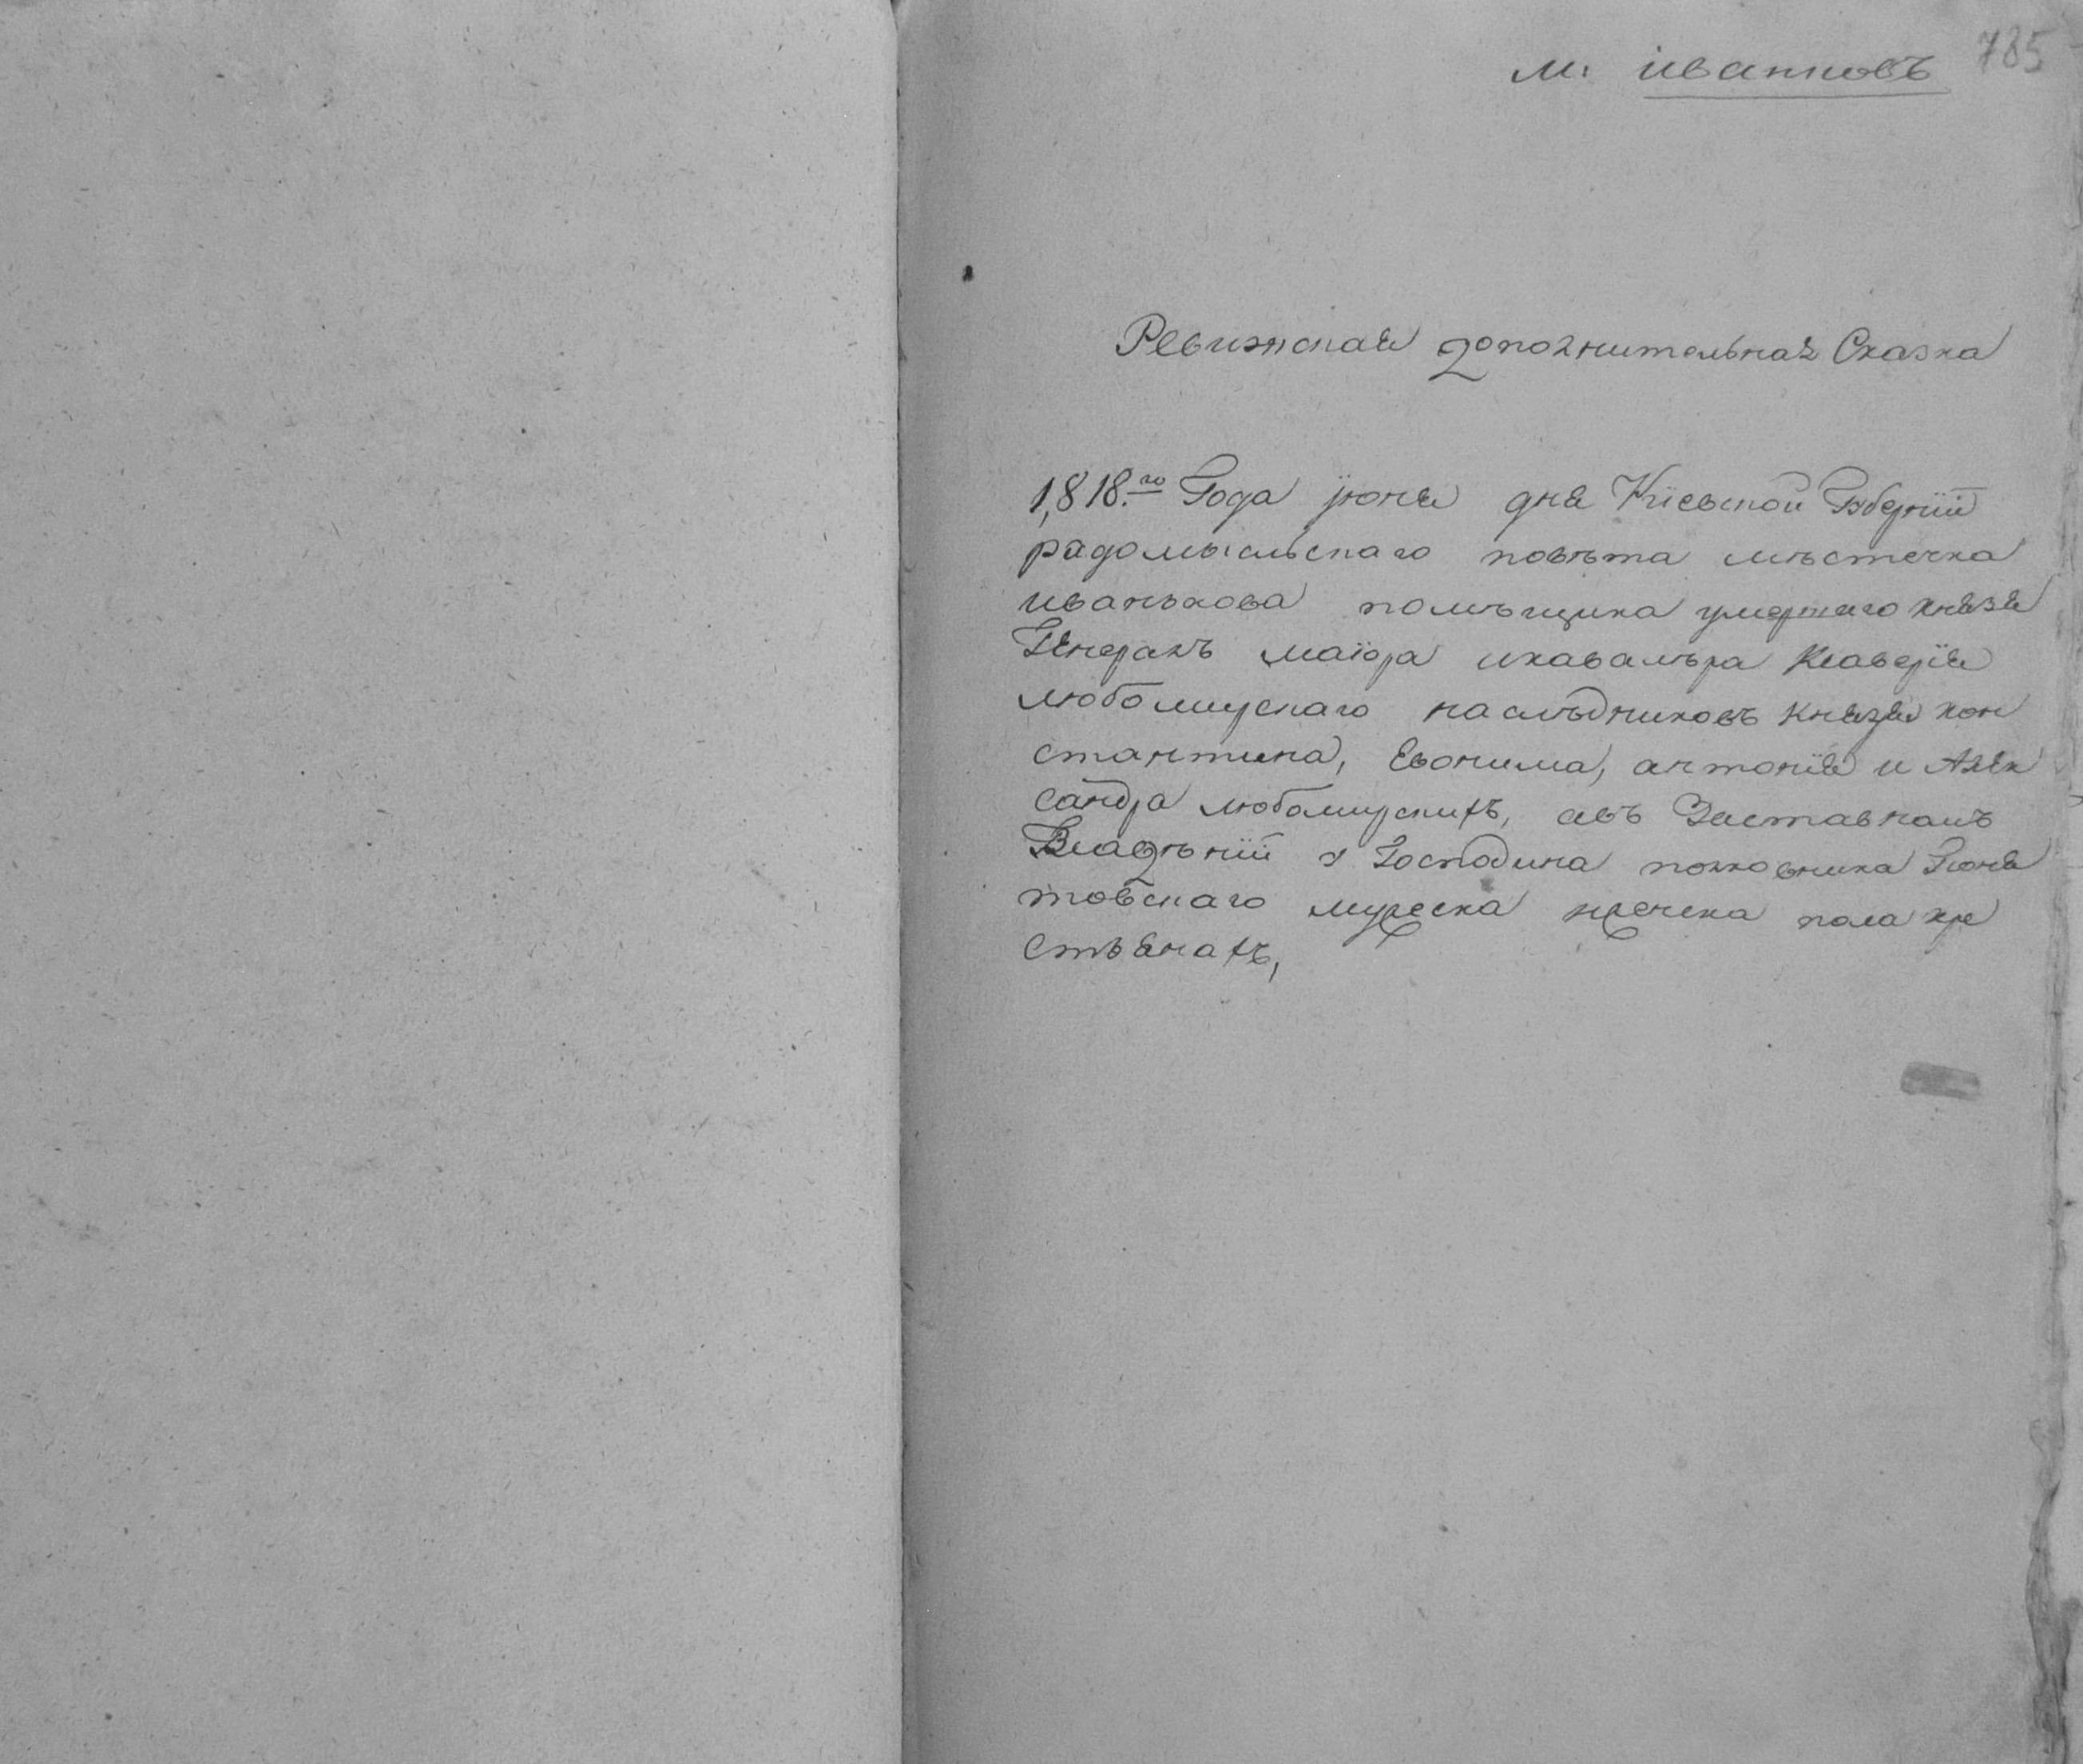 785
м. иванковъ
Ревизская дополнительная Сказка
1,818.го Года июня дня Кіевской Губерніи
радомысльскаго повѣта мѣстечка
иванькова помѣщика умершаго князя
Генералъ маіора икавалѣра Ксаверія
любомирскаго наслѣдниковъ князя кон
стантина, Евонима, антонія и Алек
сандра любомирскихъ, авъ Заставномъ
Владѣніи у Господина полковника
товскаго мужеска женска пола кре
стьянахъ,